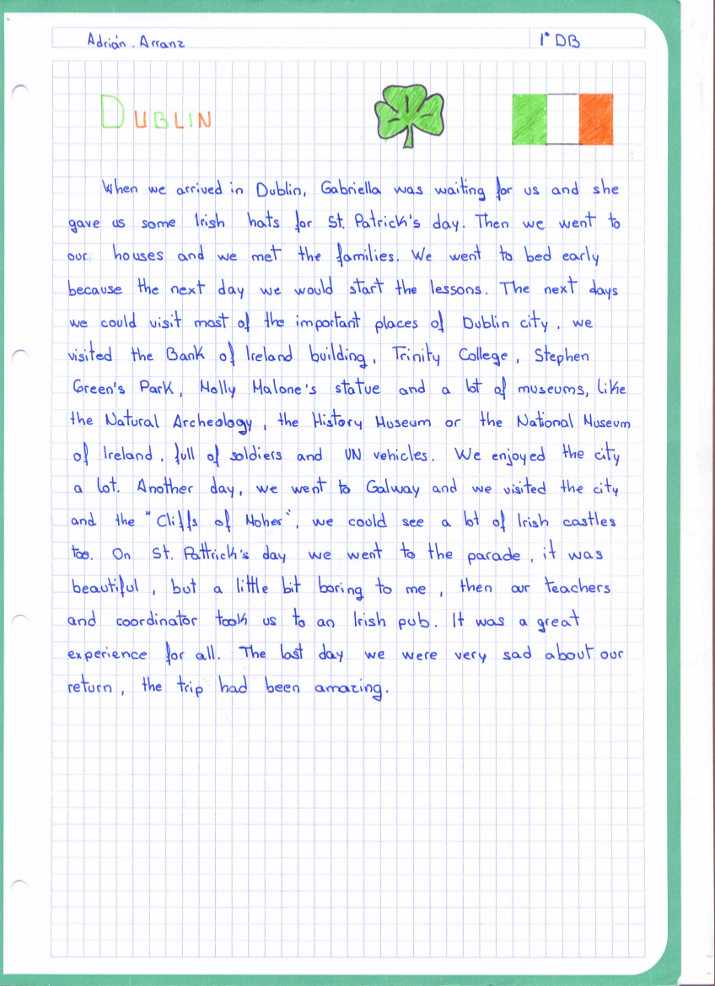 Adrián. Arranz 1° DB
DUBLIN
When we arrived in Dublin, Gabriella was waiting for us and she
gave us some Irish hats for St. Patrick's day. Then we went to
our houses and we met the families. We went to bed early
because the next day we would start the lessons. The next days
we could visit most of the important places of Dublin city, we
visited the Bank of Ireland building, Trinity College, Stephen
Green's Park, Molly Malone's statue and a lot of museums, like
the Natural Archeology, the History Museum or the National Museum
of Ireland, full of soldiers and UN vehicles. We enjoyed the city
a lot. Another day, we went to Galway and we visited the city
and the "Cliffs of Moher", we could see a lot of Irish castles
too. On St. Pattrick's day we went to the parade, it was
beautiful, but a little bit boring to me, then our teachers
and coordinator took us to an Irish pub. It was a great
experience for all. The last day we were very sad about our
return, the trip had been amazing.